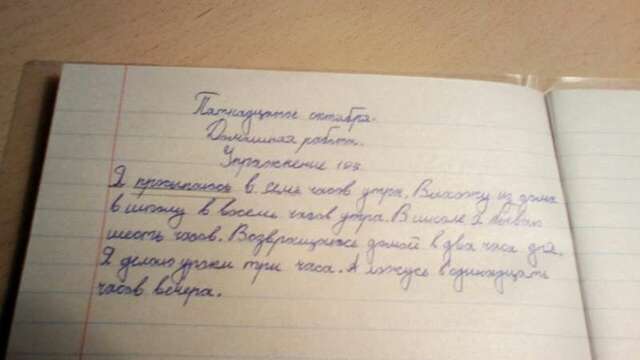 Пятнадцатое октября.
Домашная работа.
Упражнение 195.
Я просыпаюсь в семь часов утра. Выхожу из дома
в школу в восемь часов утра. В школе я бываю
шесть часов. Возвращаюсь домой в два часа дня.
Я делаю уроки три часа. А ложусь в одинадцать
часов вечера.